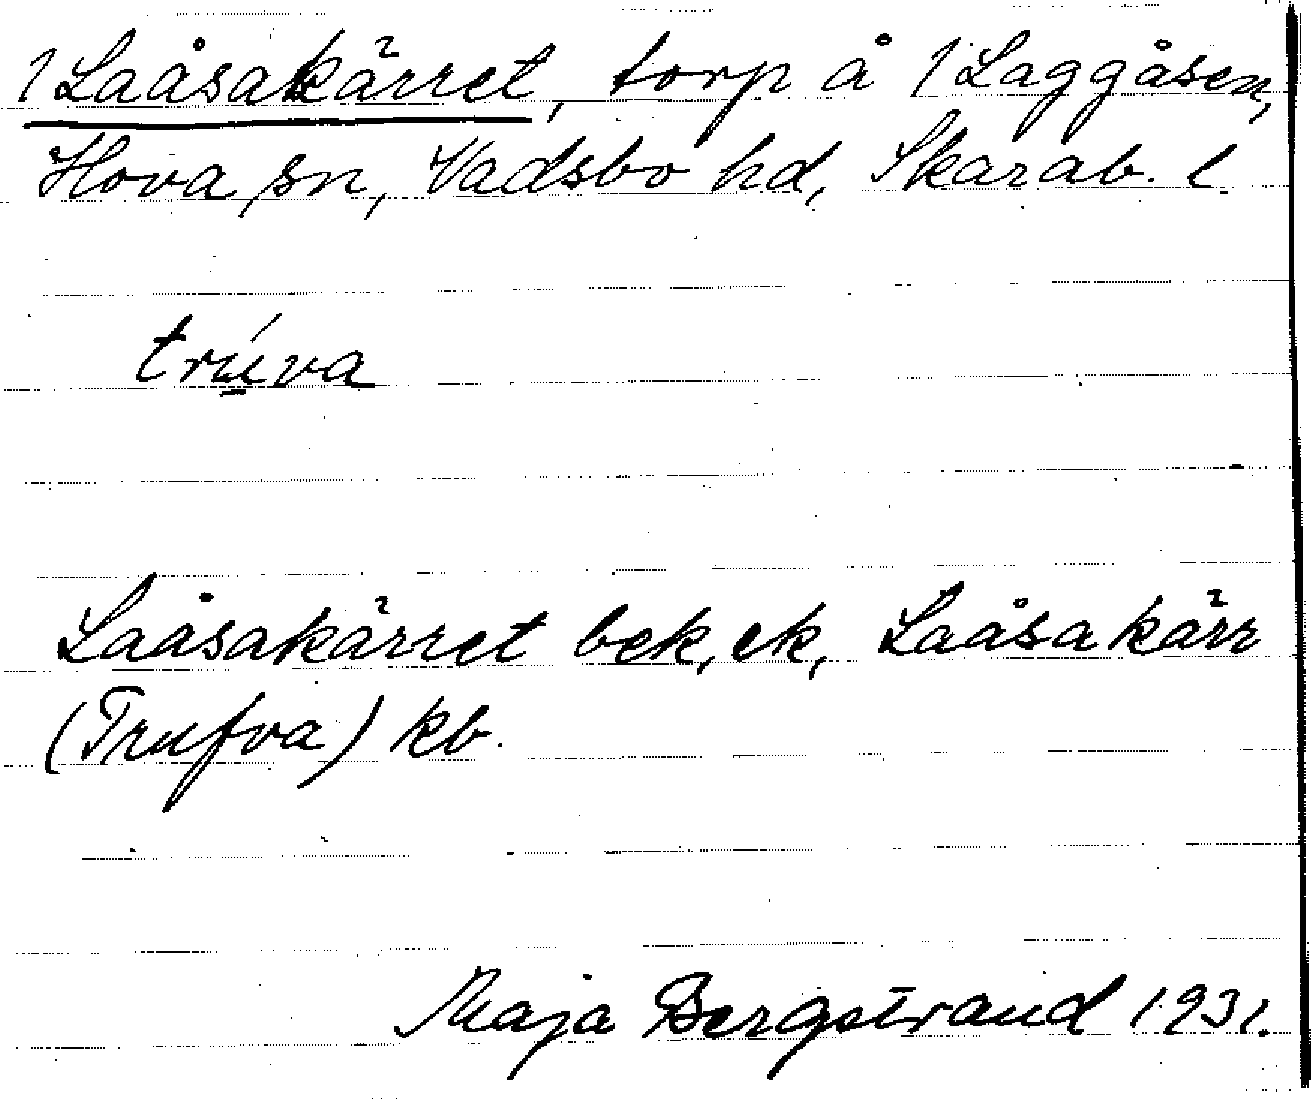 1 Laåsakärret, torp å 1 Laggåsen,
Hova sn, Vadsbo hd, Skarab. l.
trúva
Laåsakärret bek, ek, Laåsakärr
(Trufva) kb.
Maja Bergstrand 1931.